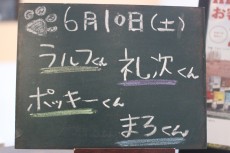 6月10日(土)
ラルフくん 礼次くん
ポッキーくん
まろくん